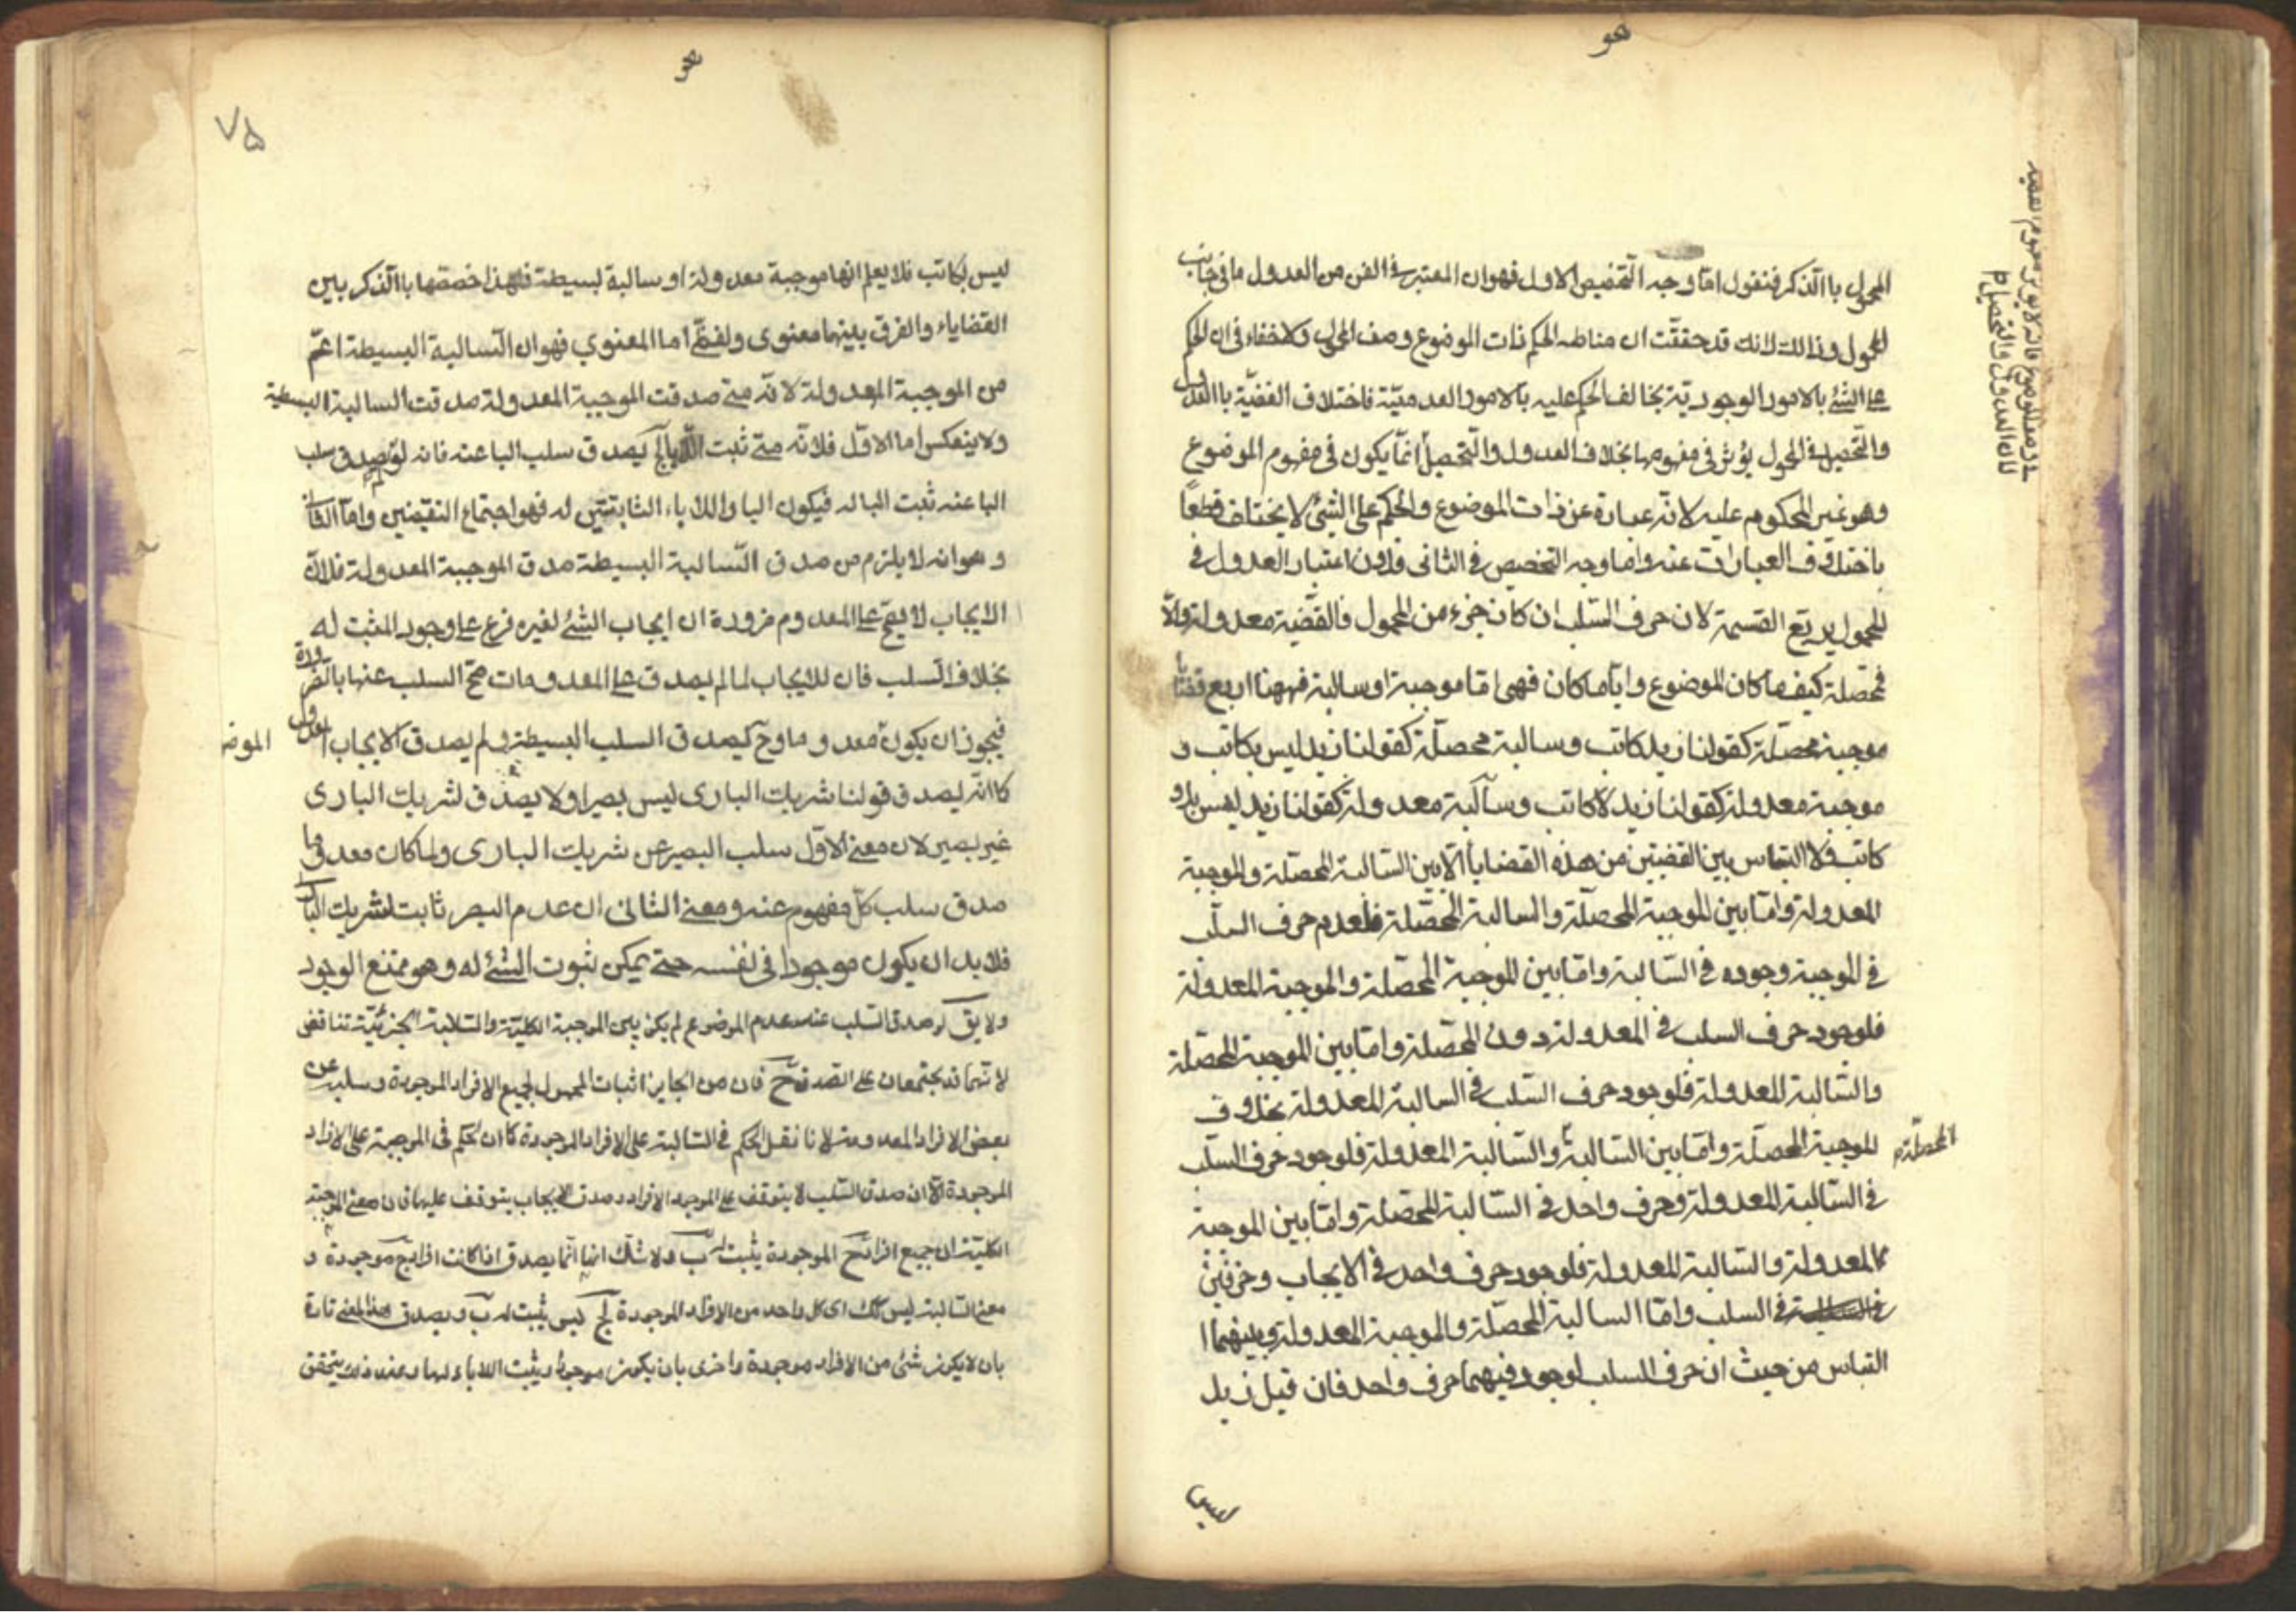 هو
المحمول باالذكر فنقول امّا وجه التخصيص الاول فهو ان المعتبر فى الفن من العدول ما فى جانب
المحمول وذالك لانك قد حققت ان مناط الحكم ذات الموضوع وصف المحمول ولا خفاء فى ان الحكم
على الشئ بالامور الوجودية يخالف الحكم عليه بالامور العدميّة فاختلاف القضيّة باالعدول
والتحصيل فى المحمول يؤثر فى مفهومها بخلاف العدول والتحصيل انّما يكون فى مفهوم الموضوع
وهو غير المحكوم عليه لانه عبارة عن ذات الموضوع والحكم على الشئ لا يختلف قطعاً
باختلاف العبارات عنه وامّا وجه التخصيص فى الثانى فلان اعتبار العدول فى
المحمول يربّع القسمة لان حرف السّلب ان كان جزء من المحمول فالقضية معدولة والّا
فمحصّلة كيفما كان الموضوع وايّاما كان فهى امّا موجبة او سالبة فههنا اربع قضايا
موجبة محصّلة كقولنا زيد كاتب وسالبة محصلّة كقولنا زيد ليس بكاتب و
موجبة معدولة كقولنا زيد لا كاتب وسالبة معدولة كقولنا زيد ليس بلا و
كاتب فلا التباس بين القضيتين من هذه القضايا الّا بين السّالبة المحصّلة والموجبة
المعدولة وامّا بين الموجبة المحصلّة والسالبة المحصّلة فلعدم حرف السلّب
فى الموجبة وجوده فى السّالبة وامّا بين الموجبة المحصّلة والموجبة المعدولة
فلوجود حرف السلب فى المعدولة دون المحصّلة وامّا بين الموجبة المحصّلة
والسّالبة المعدولة فلوجود حرف السّلب فى السالبة المعدولة بخلاف
الموجبة المحصلّة وامّا بين السّالبة والسّالبة المعدولة فلوجود حرف السّلب
المحصّلة
فى السّالبة المعدولة وحرف واحد فى السّالبة المحصّلة وامّا بين الموجبة
المعدولة والسّالبة المعدولة فلوجود حرف واحد فى الايجاب وحرفين
فى السلب وامّا السالبة المحصّلة والموجبة المعدولة وبينهما ا
التباس من حيث ان حرف السلب لوجود فيهما حرف واحد فان قيل زيد
ليس
فى الموضوع فانه لا يؤثر مفهوم القضية
لان العدول والتحصيل
هو
٧٥
ليس بكاتب فلا يعلم انها موجبة معدولة او سالبة بسيطة فلهذا خصصها باالذكر بين
القضاياء والفرق بينهما معنوى ولفظّى اما المعنوي فهو ان السّالبة البسيطة اعمّ
من الموجبة المعدولة لانّه متى صدقت الموجبة المعدولة صدقت السالبة البسيطة
ولا ينعكس اما الاوّل فلانّه متى ثبت يصدق سلب البا عنه فانه لو لم يصدق سلب
البا عنه ثبت الباله فيكون البا واللاباء الثابتتين له فهو اجتماع النقيضين وامّا الثانى
وهو انه لا يلزم من صدق السّالبة البسيطة صدق الموجبة المعدولة فلان
الايجاب لا يصحّ على المعدوم ضرورة ان ايجاب الشئ لغيره فرع على وجود المثبت له
بخلاف السلب فان الايجاب لما لم يصدق على المعدومات صحّ السلب عنها بالضرورة
فيجوز ان يكون معدوما وح كيصدق السلب البسيطة ولم يصدق الايجاب العدول
الموضوع
كما انّه ليصدق قولنا شريك البارى ليس بصيرا ولا يصدق لشريك البارى
غير بصير لان معنى الاوّل سلب البصير عن شريك البارى ولما كان معدوما
صدق سلب كلّ مفهوم عنه ومعنى الثانى ان عدم البصر ثابت لشريك البارى
فلا بد ان يكون موجودا فى نفسه حتى يمكن ثبوت الشئ له وهو ممتنع الوجود
ولا يق لو صدق السّلب عند عدم الموضوع لم يكن بين الموجبة الكليّة والسّالبة الجزئيّة تناقض
لانّهما قد يجتمعان على الصدق ح فان من الجايز اثبات المحمول لجميع الافراد الموجودة وسلبه عن
بعض الافراد المعدومة لانا نقول الحكم فى السّالبة على الافراد الموجودة كما ان الحكم فى الموجبة على الافراد
الموجودة الّا ان صدق السّلب لا يتوقف على الموجود الافراد وصدق الايجاب يتوقف عليها فان معنى الموجبة
الكليّة ان جميع افراد ج الموجودة يثبت له ب ولا شك انها انّما يصدق اذا كانت افراد ج موجودة و
معنى السّالبة ليس كك اى كل واحد من الافراد الموجودة لج ليس يثبت له ب ويصدق هذا المعنى تارة
بان لا يكون شئ من الافراد موجودة واخرى بان يكون موجودا ويثبت اللاباء لها وعند ذلك يتحقق